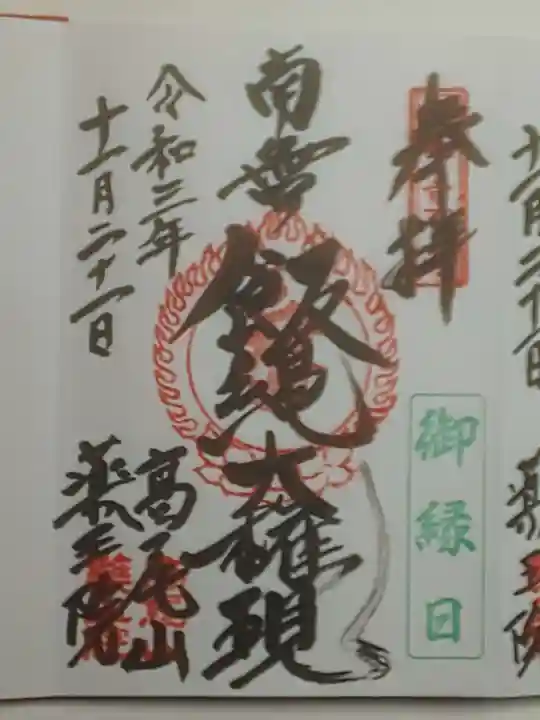 十一月二十一日
薬王院
奉拝
御縁日
南無
飯縄
大権現
令和三年
十一月二十一日
高尾山
薬王院